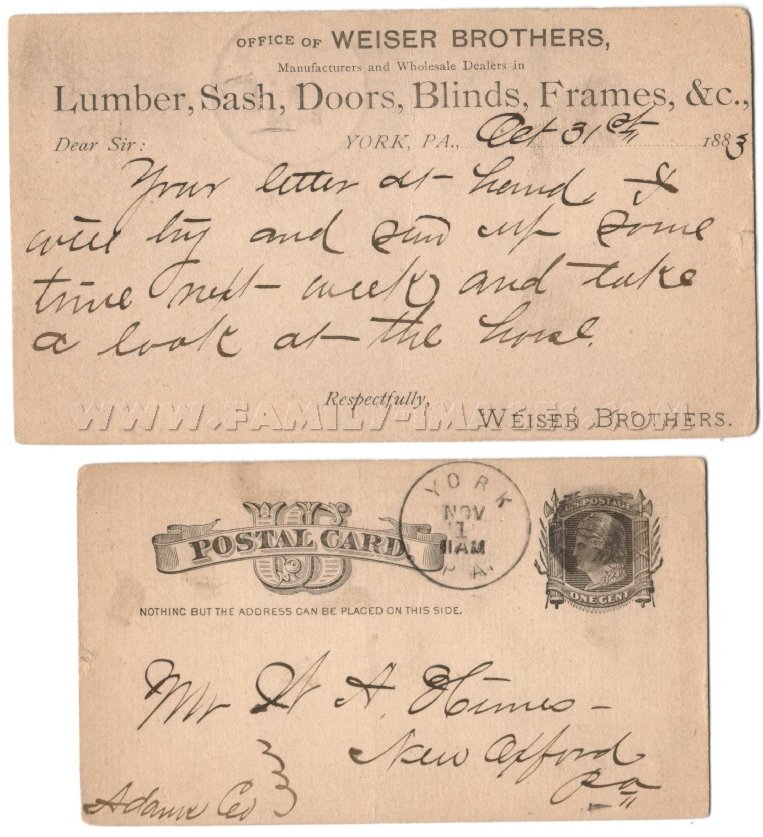 OFFICE OF WEISER BROTHERS,
Manufacturers and Wholesale Dealers in
Lumber, Sash, Doors, Blinds, Frames, &c.,
Dear Sir: YORK, PA., Oct 31st 1883
Your letter at hand, I
will try and run up some
time next week and take
a look at the horse.
Respectfully,
WEISER BROTHERS.
WWW.FAMILY-IMAGES.COM
US
POSTAL CARD.
NOTHING BUT THE ADDRESS CAN BE PLACED ON THIS SIDE.
YORK
NOV
1
11AM
PA.
U.S. POSTAGE
ONE CENT
Mr W A. Himes
New Oxford
Pa
Adams Co